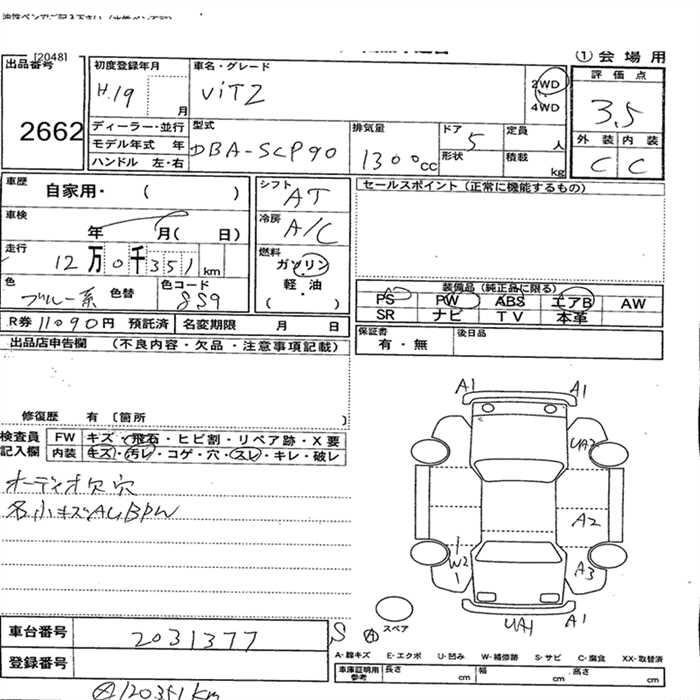 [2048]
① 会 場 用
出品番号
2662
初度登録年月
H.19 月
車名・グレード
ViTZ
2WD
4WD
評 価 点
3,5
ディーラー・並行
モデル年式 年
ハンドル 左・右
型式
DBA-SCP90
排気量
1300cc
ドア
5
形状
定員
人
積載
kg
外 装 内 装
C C
車歴
自家用・ ( )
シフト
AT
セールスポイント (正常に機能するもの)
車検
年 月( 日)
冷房
A/C
走行
12万0千351km
燃料
ガソリン
軽・油
( )
色
ブルー系 色替
色コード
8S9
装備品 (純正品に限る)
PS PW ABS エアB AW
SR ナビ TV 本革
R券 11090円 預託済 名変期限 月 日
保証書
有・無
後日品
出品店申告欄 (不良内容・欠品・注意事項記載)
修復歴 有 〔箇所 〕
検査員
記入欄
FW キズ・飛石・ヒビ割・リペア跡・X要
内装 キズ・汚レ・コゲ・穴・スレ・キレ・破レ
オーディオ欠穴
各小キズAUBPW
A1 A1
UA2
A2
W2
A3
UA1 A1
スペア
車台番号 2031377
S
登録番号
A120351km
A-線キズ E-エクボ U-凹み W-補修跡 S-サビ C-腐食 XX-取替済
車庫証明用
参考
長さ cm 幅 cm 高さ cm